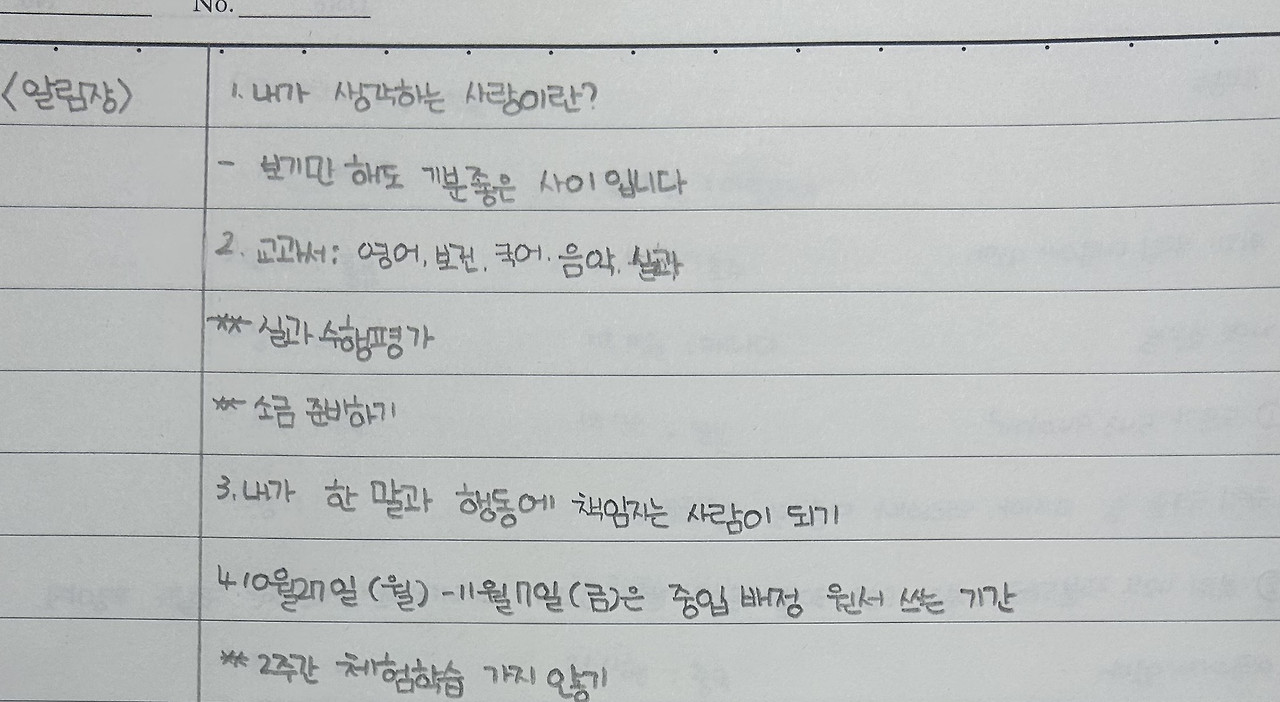 No.
<알림장>
1. 내가 생각하는 사랑이란?
- 보기만 해도 기분좋은 사이입니다
2. 교과서: 영어, 보건, 국어, 음악, 실과
** 실과 수행평가
** 소금 준비하기
3. 내가 한 말과 행동에 책임지는 사람이 되기
4 10월27일 (월) - 11월 7일 (금)은 중입 배정 원서 쓰는 기간
** 2주간 체험학습 가지 않기